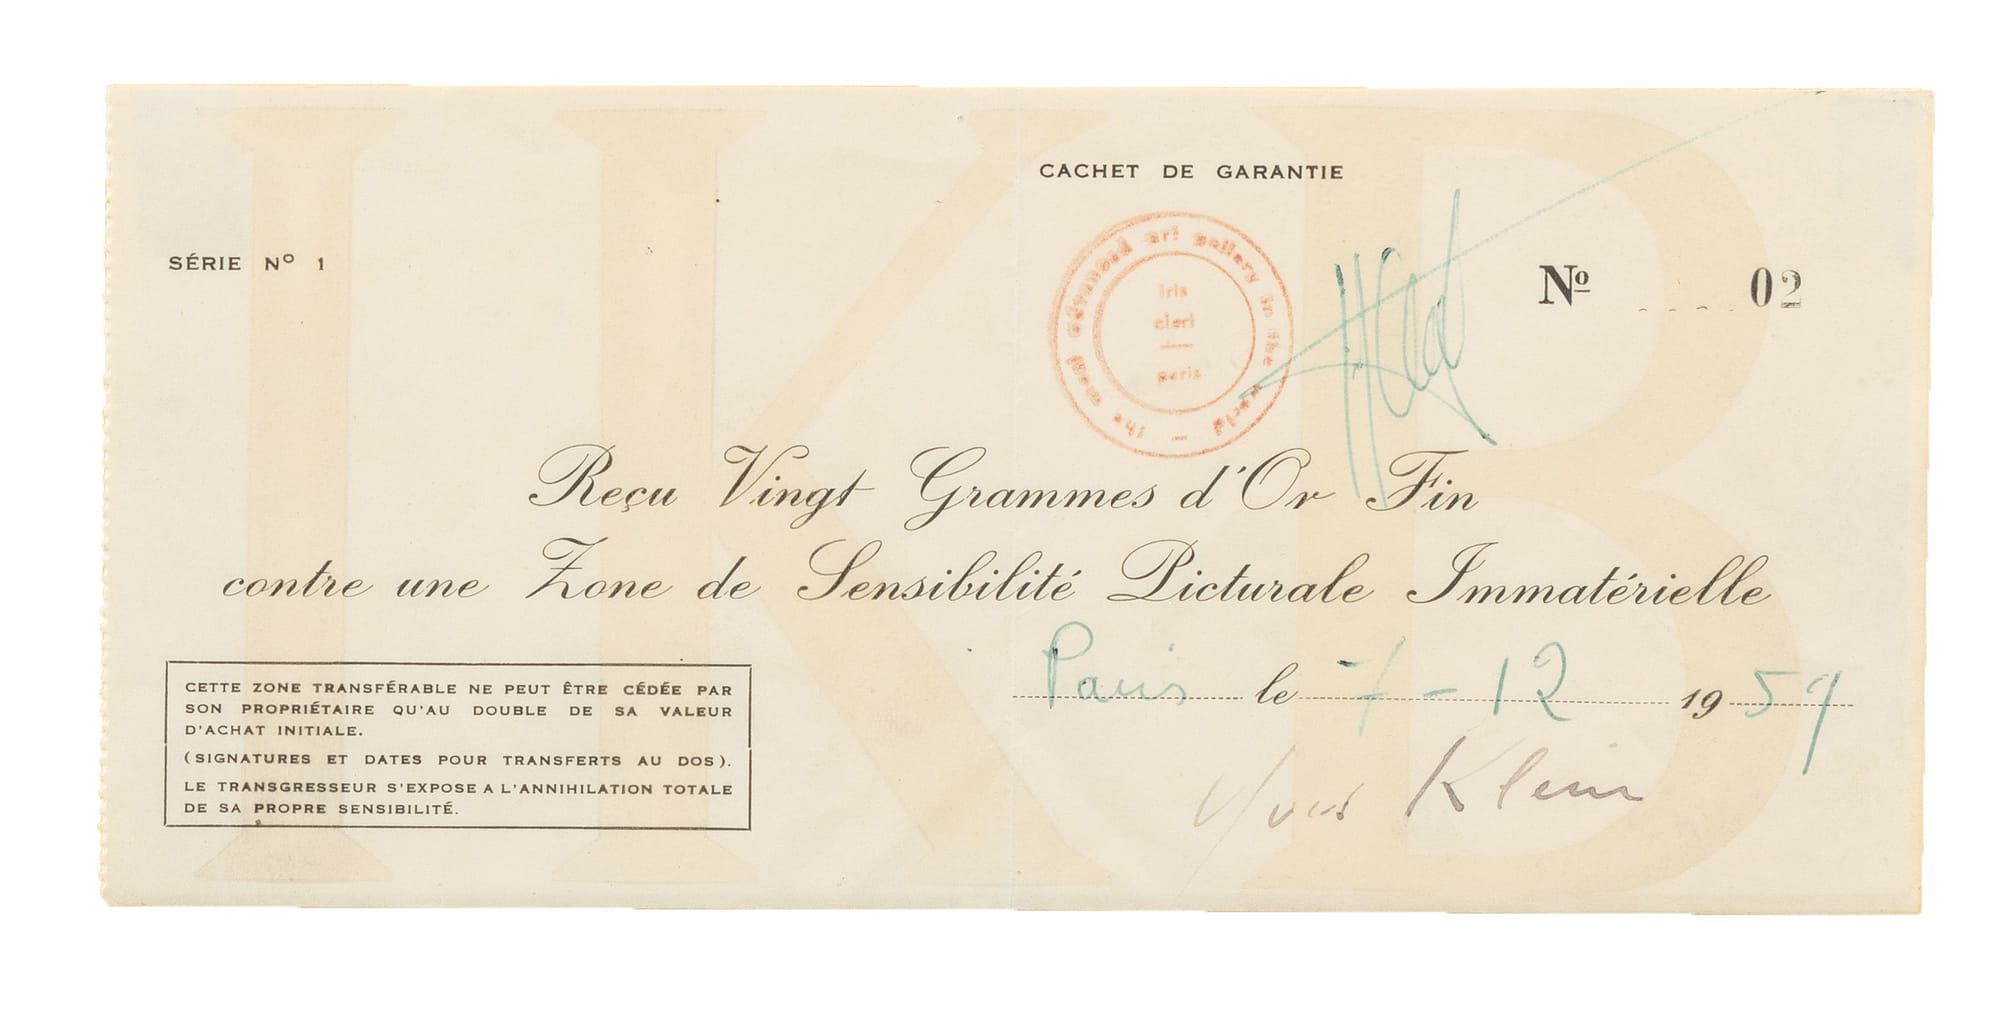 IKB
CACHET DE GARANTIE
SÉRIE Nº 1
the most advanced art gallery in the world –
iris
clert
paris
Nº 02
Reçu Vingt Grammes d'Or Fin
contre une Zone de Sensibilité Picturale Immatérielle
Paris le 7 - 12 1959
Yves Klein
CETTE ZONE TRANSFÉRABLE NE PEUT ÊTRE CÉDÉE PAR
SON PROPRIÉTAIRE QU'AU DOUBLE DE SA VALEUR
D'ACHAT INITIALE.
(SIGNATURES ET DATES POUR TRANSFERTS AU DOS).
LE TRANSGRESSEUR S'EXPOSE A L'ANNIHILATION TOTALE
DE SA PROPRE SENSIBILITÉ.